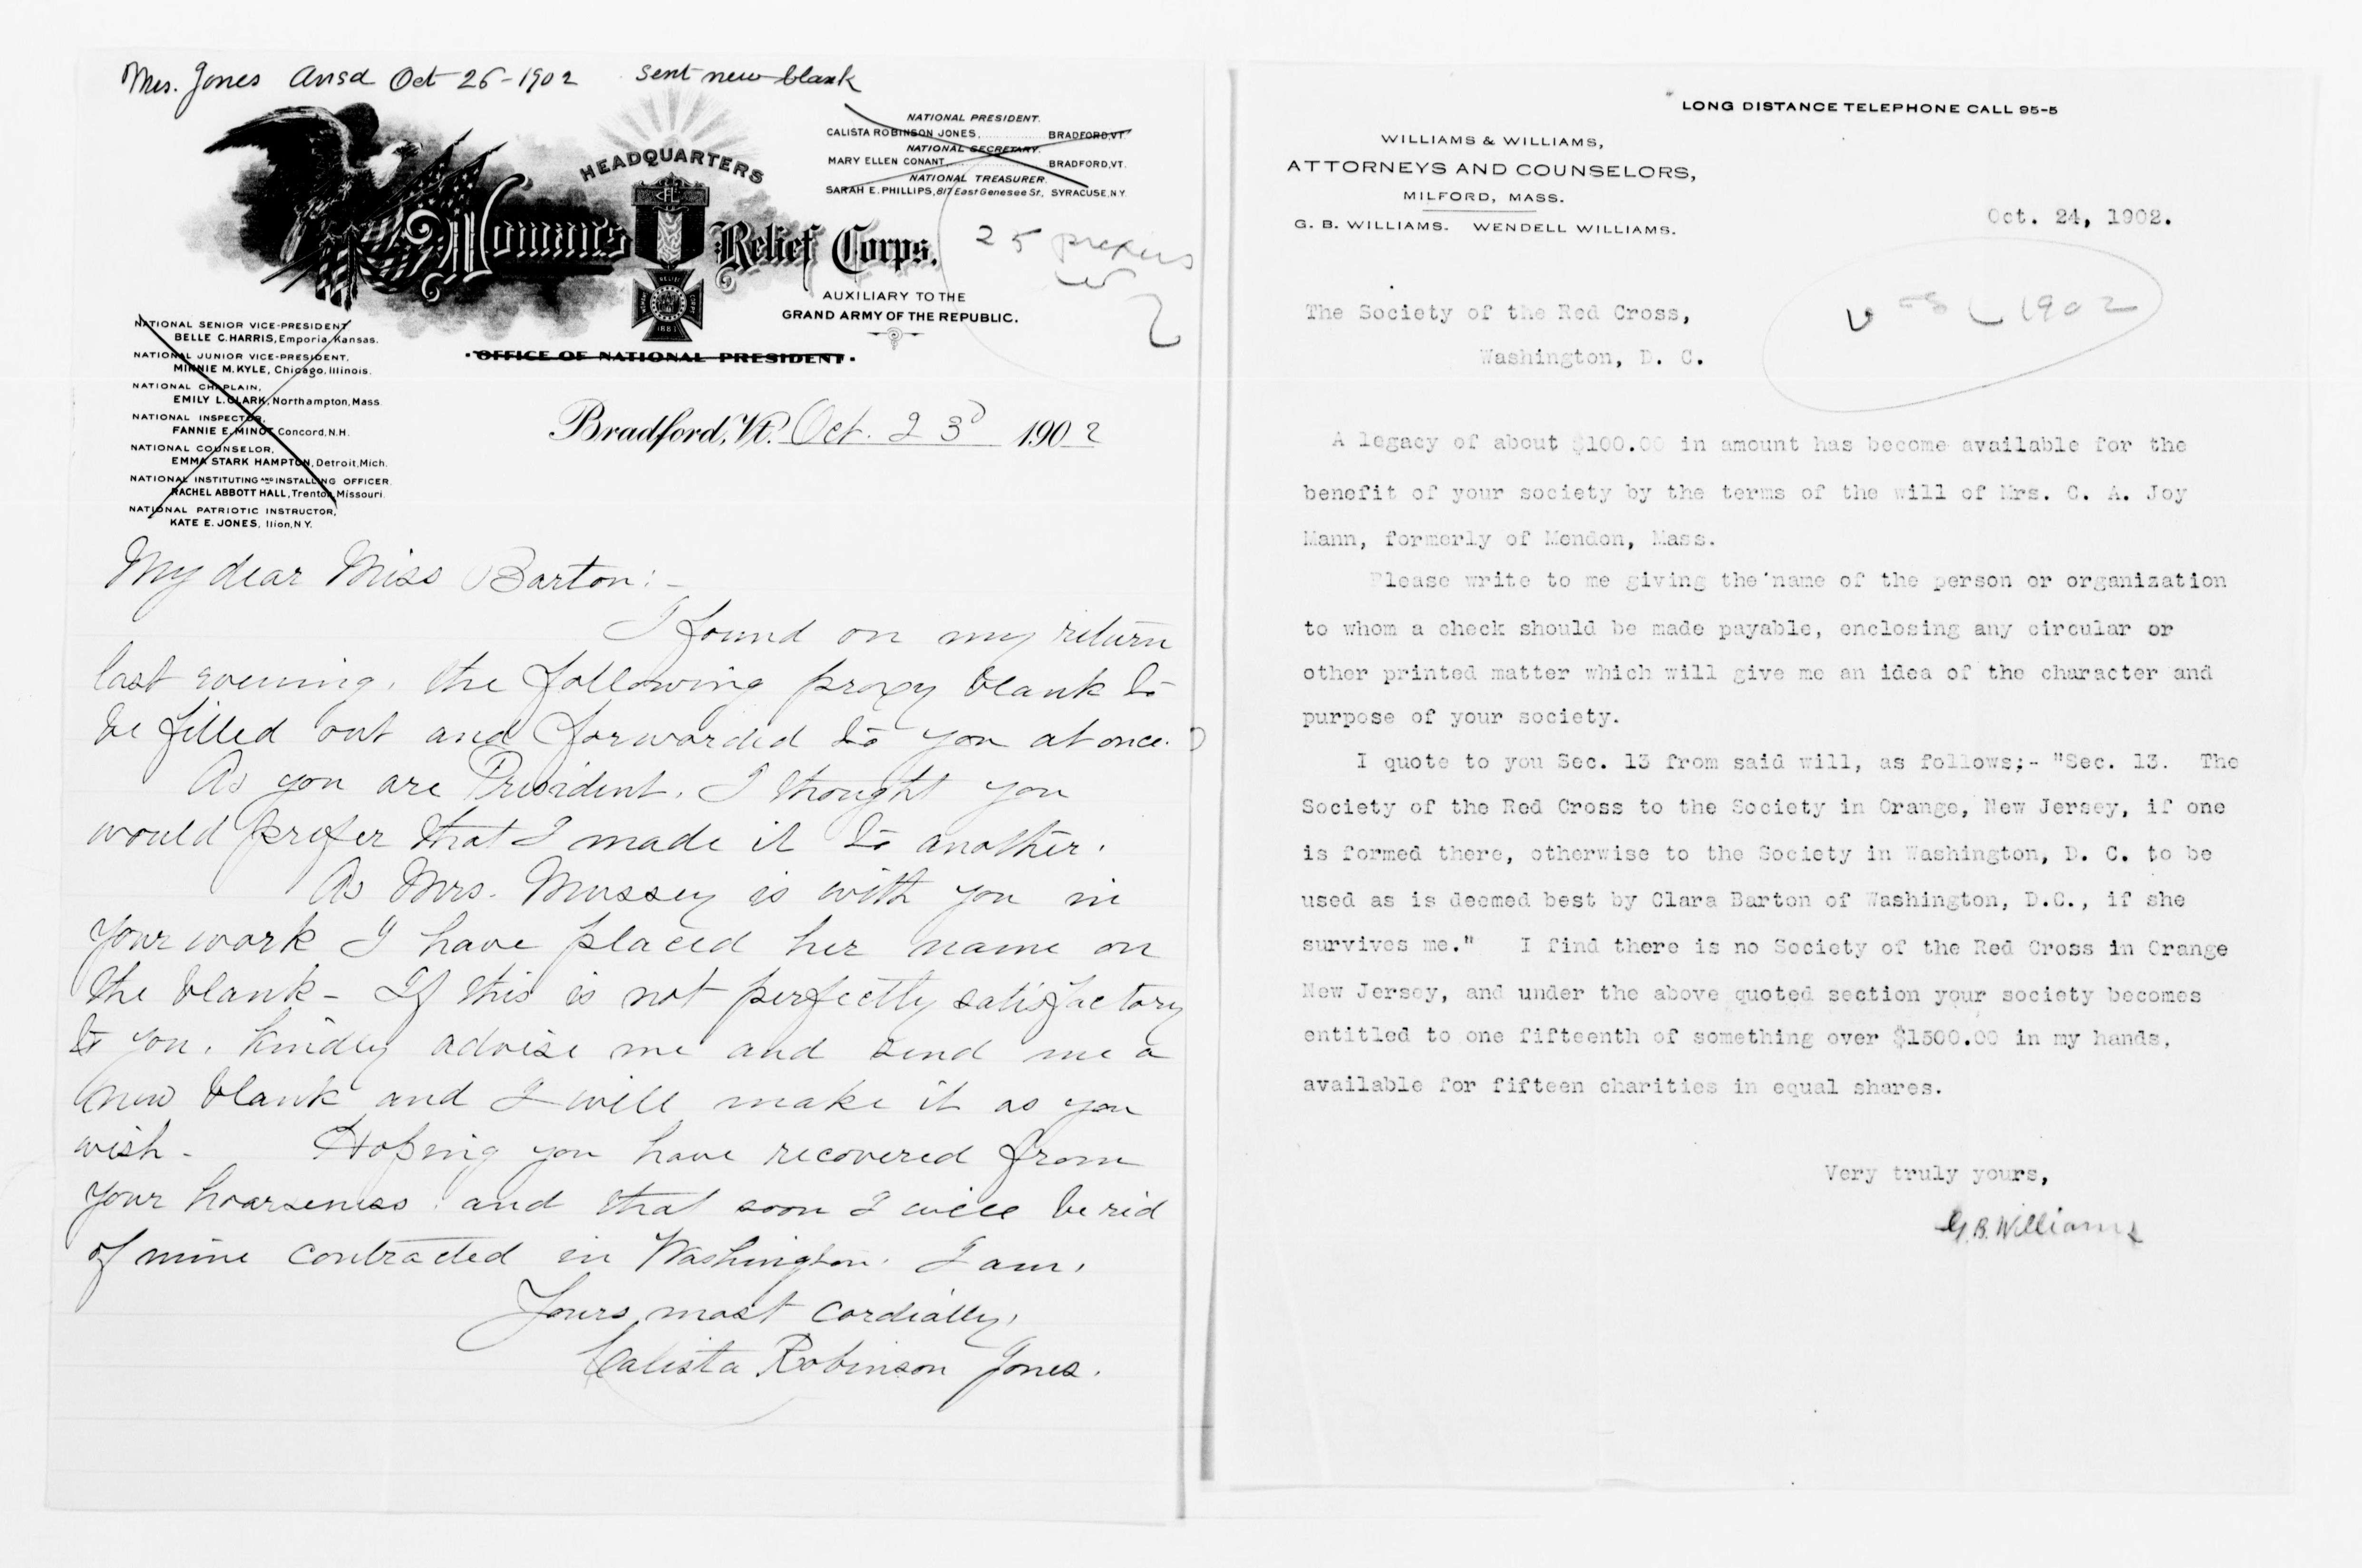 Mrs. Jones Ansd Oct 26-1902 sent new blank
HEADQUARTERS
Woman's Relief Corps.
1883
AUXILIARY TO THE
GRAND ARMY OF THE REPUBLIC.
OFFICE OF NATIONAL PRESIDENT.
NATIONAL PRESIDENT.
CALISTA ROBINSON JONES, BRADFORD, VT.
NATIONAL SECRETARY.
MARY ELLEN CONANT, BRADFORD, VT.
NATIONAL TREASURER.
SARAH E. PHILLIPS, 817 East Genesee St., SYRACUSE, N.Y.
25
NATIONAL SENIOR VICE-PRESIDENT
BELLE C. HARRIS, Emporia, Kansas.
NATIONAL JUNIOR VICE-PRESIDENT,
MINNIE M. KYLE, Chicago, Illinois.
NATIONAL CHAPLAIN,
EMILY L. CLARK, Northampton, Mass.
NATIONAL INSPECTOR,
FANNIE E. MINOT, Concord, N.H.
NATIONAL COUNSELOR,
EMMA STARK HAMPTON, Detroit, Mich.
NATIONAL INSTITUTING AND INSTALLING OFFICER.
RACHEL ABBOTT HALL, Trenton, Missouri.
NATIONAL PATRIOTIC INSTRUCTOR,
KATE E. JONES, Ilion, N.Y.
Bradford, Vt. Oct. 23d 1902
My dear Miss Barton:-
I found on my return
last evening, the following proxy blank to
be filled out and forwarded to you at once.
As you are President, I thought you
would prefer that I made it to another.
As Mrs. Mussey is with you in
your work I have placed her name on
the blank - If this is not perfectly satisfactory
to you, kindly advise me and send me a
new blank and I will make it as you
wish - Hoping you have recovered from
your hoarseness and that soon I will be rid
of mine contracted in Washington. I am,
Yours most cordially,
Calista Robinson Jones.
LONG DISTANCE TELEPHONE CALL 95-5
WILLIAMS & WILLIAMS,
ATTORNEYS AND COUNSELORS,
MILFORD, MASS.
G. B. WILLIAMS. WENDELL WILLIAMS.
Oct. 24, 1902.
1902
The Society of the Red Cross,
Washington, D. C.
A legacy of about $100.00 in amount has become available for the
benefit of your society by the terms of the will of Mrs. C. A. Joy
Mann, formerly of Mendon, Mass.
Please write to me giving the name of the person or organization
to whom a check should be made payable, enclosing any circular or
other printed matter which will give me an idea of the character and
purpose of your society.
I quote to you Sec. 13 from said will, as follows;- "Sec. 13. The
Society of the Red Cross to the Society in Orange, New Jersey, if one
is formed there, otherwise to the Society in Washington, D. C. to be
used as is deemed best by Clara Barton of Washington, D.C., if she
survives me." I find there is no Society of the Red Cross in Orange
New Jersey, and under the above quoted section your society becomes
entitled to one fifteenth of something over $1500.00 in my hands,
available for fifteen charities in equal shares.
Very truly yours,
G. B. Williams